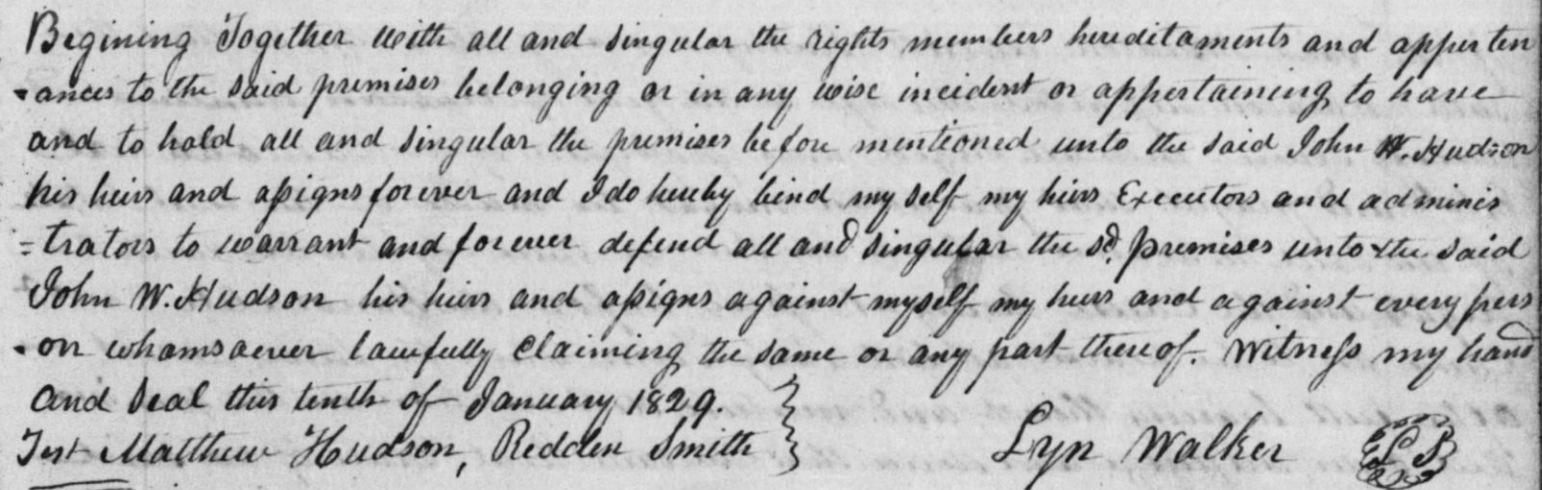 Begining Together with all and singular the rights members hereditaments and apperten
-ances to the said premises belonging or in any wise incident or appertaining to have
and to hold all and singular the premises before mentioned unto the said John W. Hudson
his heirs and assigns forever and I do hereby bind my self my heirs Executors and adminis
=trators to warrant and forever defend all and singular the sd. premises unto the said
John W. Hudson his heirs and assigns against myself my heirs and against every pers
-on whomsoever lawfully claiming the same or any part thereof. Witness my hand
and seal this tenth of January 1829.
Test Matthew Hudson, Redden Smith Lyn Walker LS